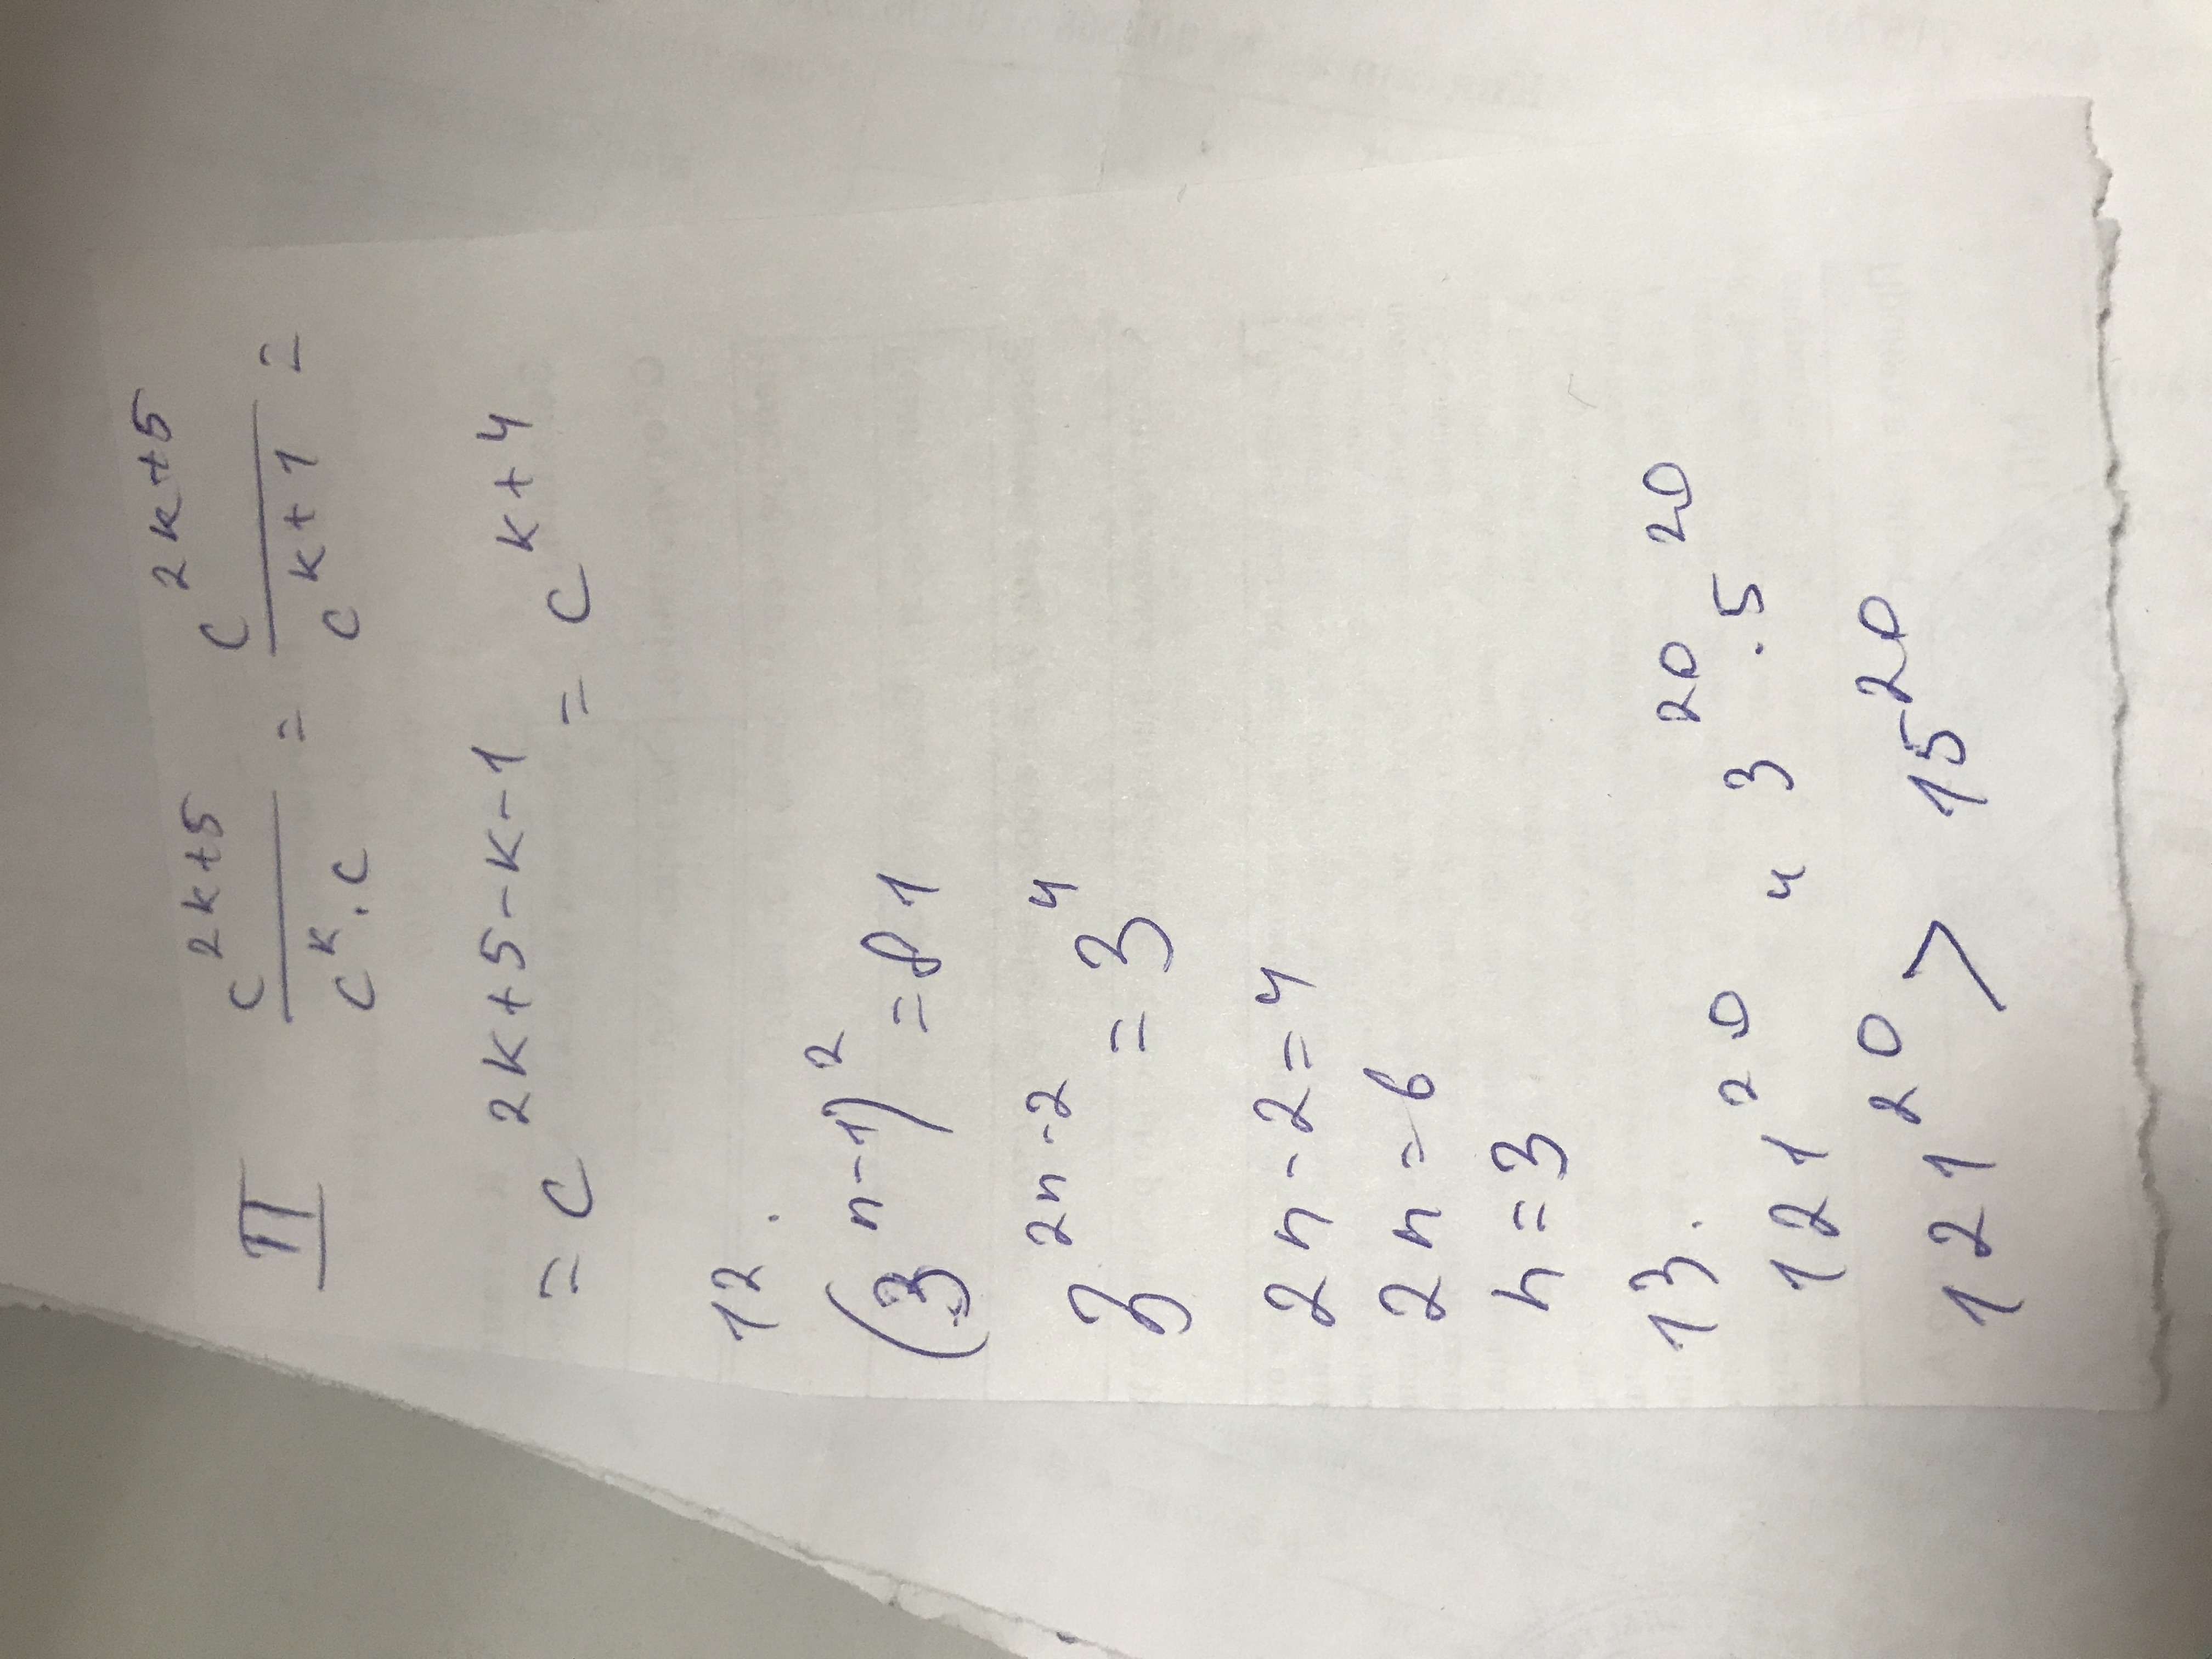 II c^{2k+5}/(c^k·c) = c^{2k+5}/c^{k+1} =
= c^{2k+5-k-1} = c^{k+4}
12.
(3^{n-1})^2 = 81
3^{2n-2} = 3^4
2n-2=4
2n=6
n=3
13.
121^{20} и 3^{20}·5^{20}
121^{20} > 15^{20}